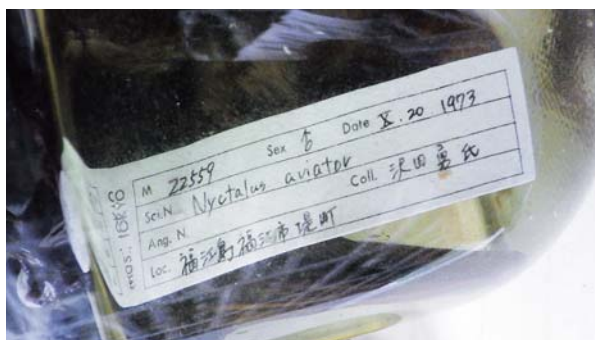 M 22559 Sex ♂ Date X. 20 1973
Sci.N. Nyctalus aviator
Ang. N. Coll. 沢田 勇 氏
Loc. 福江島福江市堤町